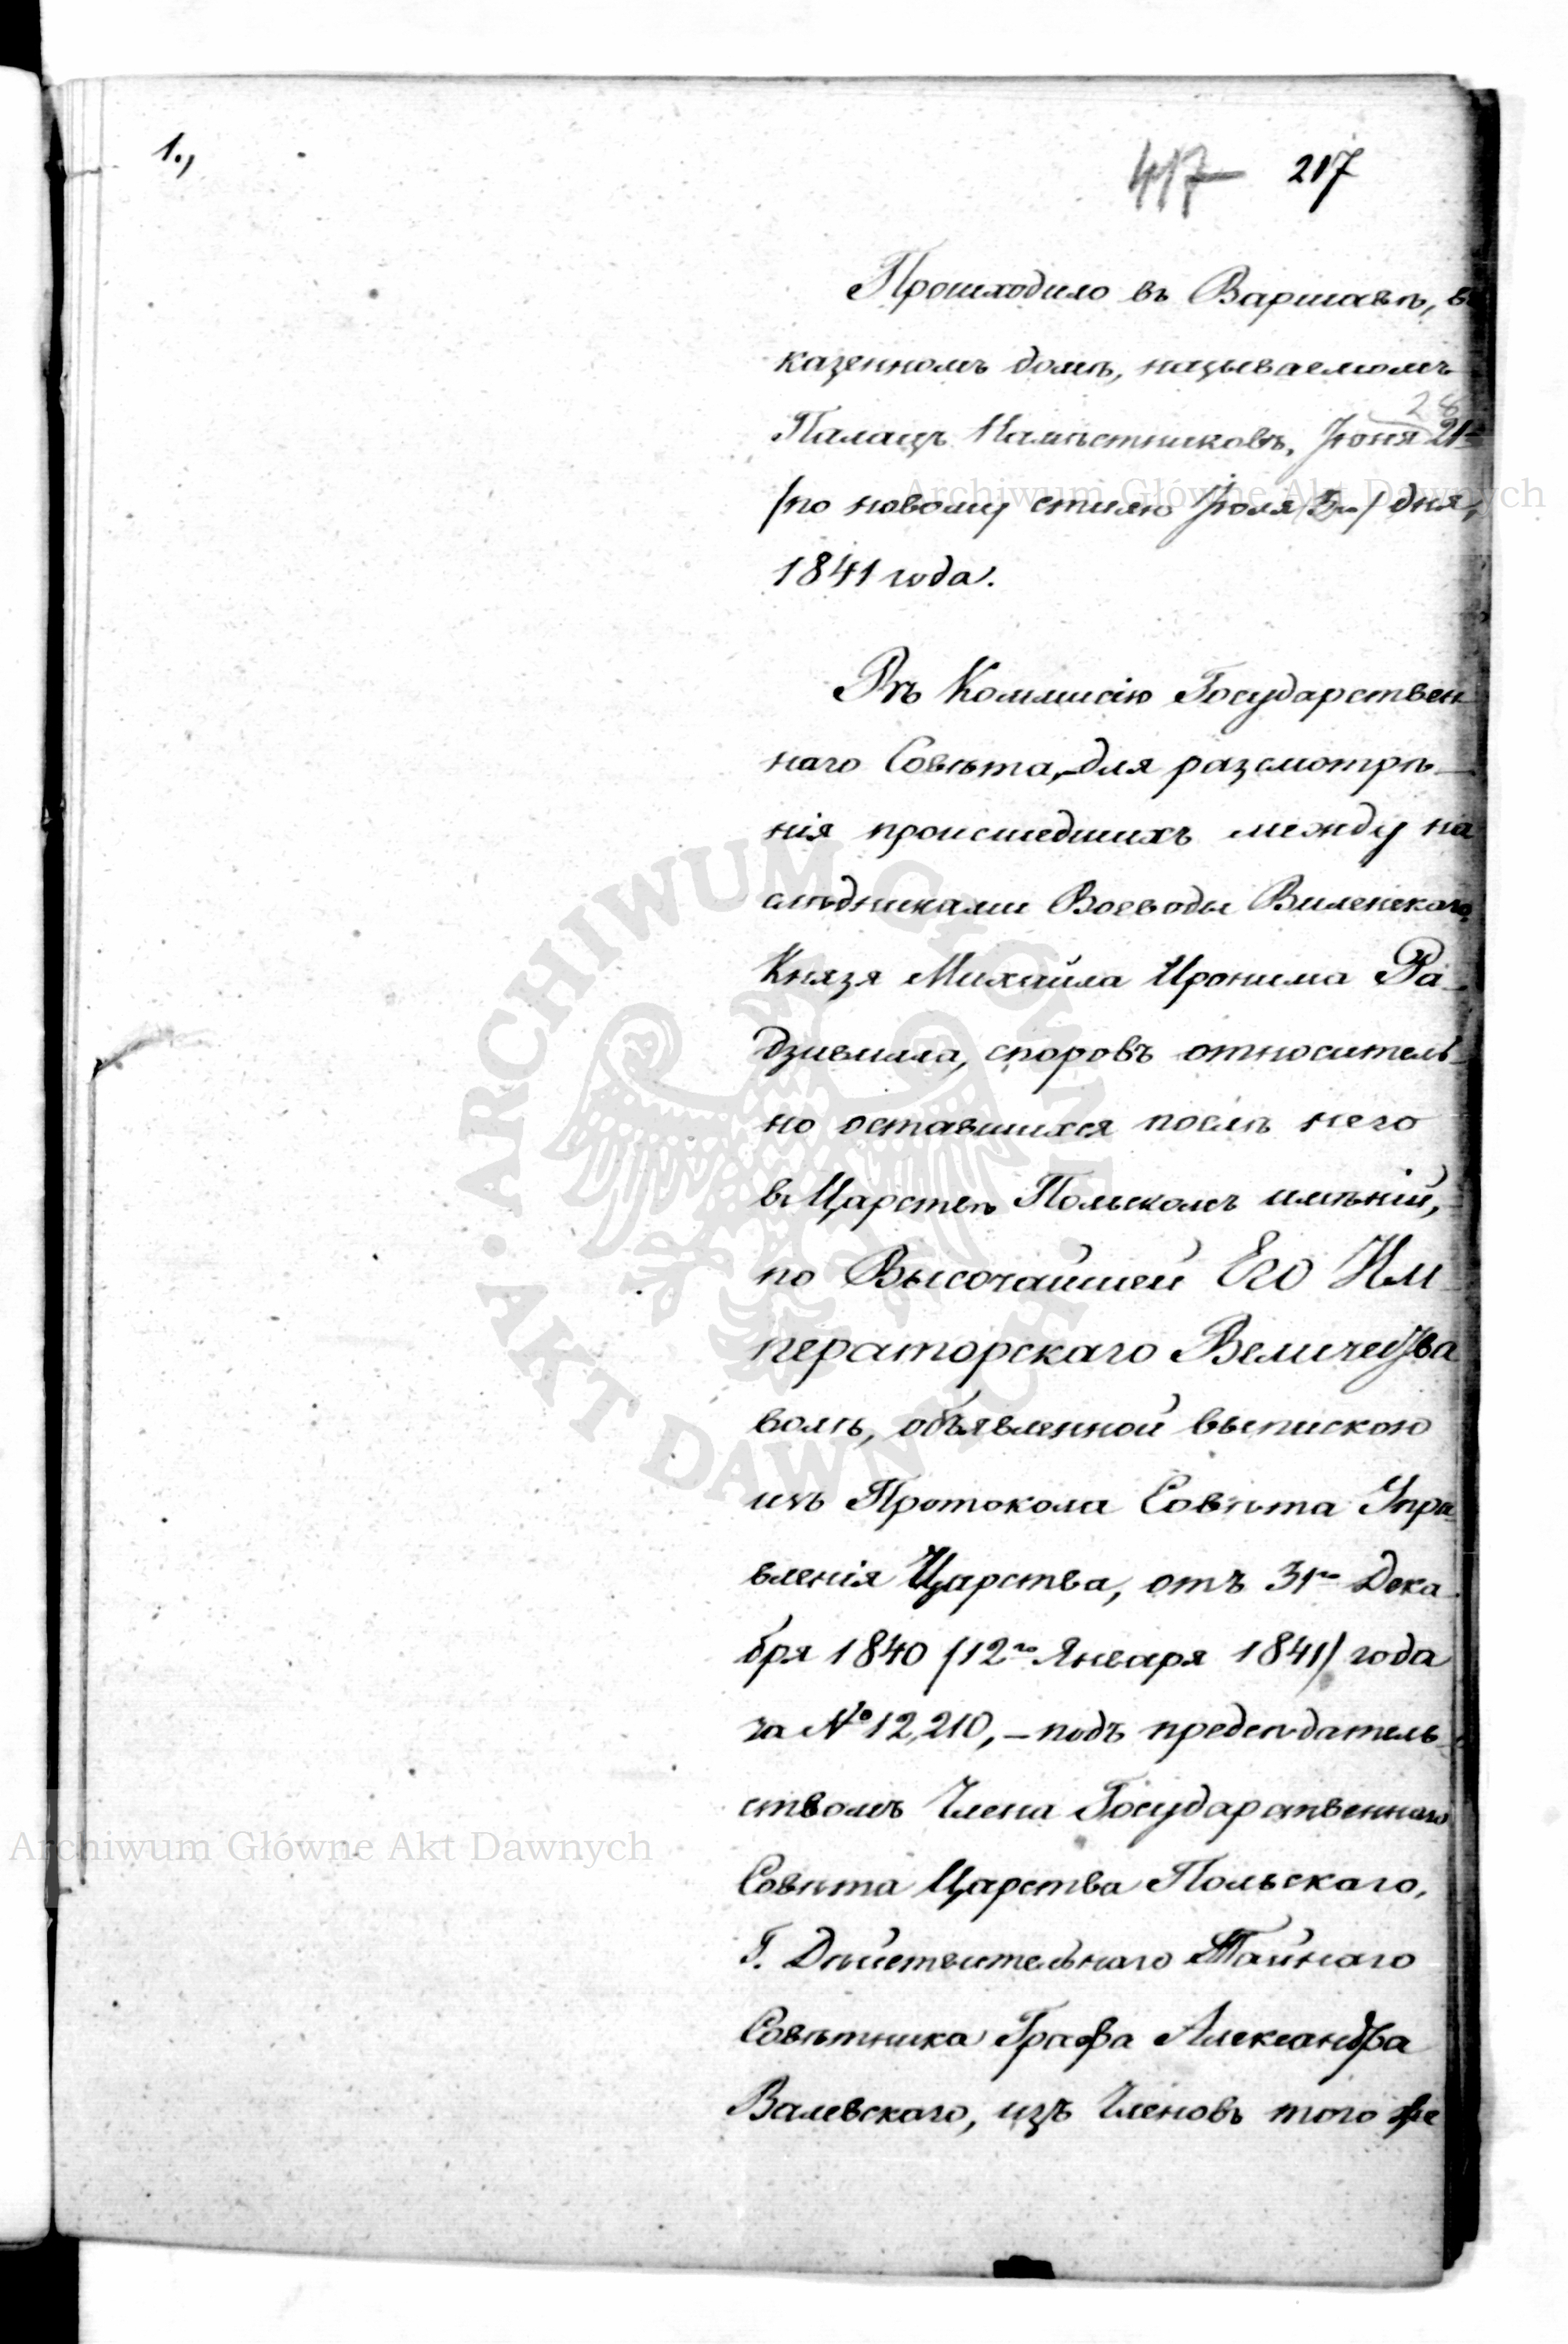 1.,
417 217
Происходило въ Варшавѣ, въ
казенномъ домѣ, называемомъ
Палацъ Намѣстниковъ, Іюня 21
28
/по новому стилю Іюля / дня,
1841 года.
Въ Коммисію Государствен
наго Совѣта, для разсмотрѣ-
нія происшедшихъ между на
слѣдниками Воеводы Виленскаго
Князя Михаила Иронима Ра-
дзивилла, споровъ относитель-
но оставшихся послѣ него
въ Царствѣ Польскомъ имѣній,
по Высочайшей Его Им-
ператорскаго Величества
волѣ, объявленной выпискою
изъ Протокола Совѣта Упра-
вленія Царства, отъ 31го Дека-
бря 1840 /12го Января 1841/ года
за № 12,210, - подъ предсѣдатель-
ствомъ Члена Государственнаго
Совѣта Царства Польскаго,
Г. Дѣйствительнаго Тайнаго
Совѣтника Графа Александра
Валевскаго, изъ Членовъ того же
Archiwum Główne Akt Dawnych
ARCHIWUM GŁÓWNE AKT DAWNYCH
Archiwum Główne Akt Dawnych